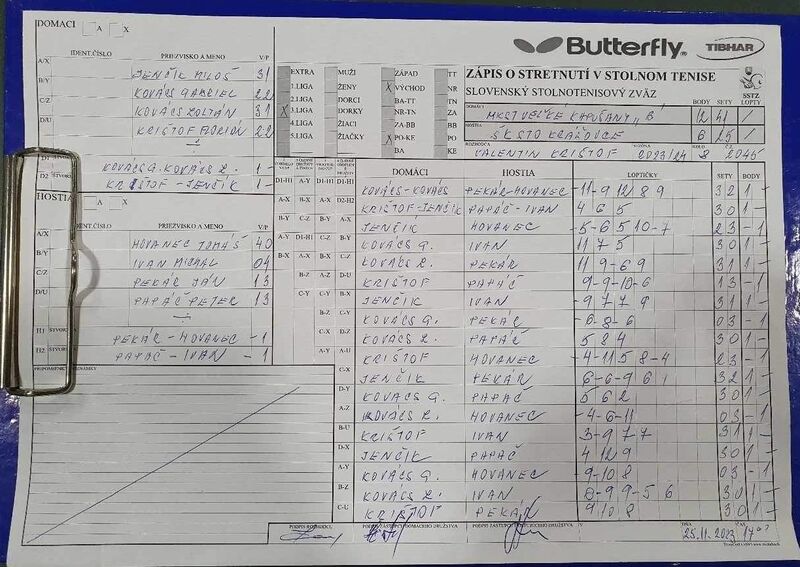 DOMACI A X
IDENT.ČÍSLO PRIEZVISKO A MENO V/P
A/X JENČÍK MILOŠ 31
B/Y KOVÁCS GABRIEL 22
C/Z KOVÁCS ZOLTÁN 31
D/U KRIŠTOF FLORIÁN 22
KOVÁCS G. KOVÁCS Z. 1 -
D2 KRIŠTOF - JENČÍK 1 -
HOSTIA A X
IDENT.ČÍSLO PRIEZVISKO A MENO V/P
A/X HOVANEC TOMÁŠ 40
B/Y IVAN MICHAL 04
C/Z PEKÁR JÁN 13
D/U PAPÁČ PETER 13
H1 PEKÁR - HOVANEC - 1
H2 PAPÁČ - IVAN - 1
EXTRA MUŽI ZÁPAD TT
1.LIGA ŽENY X VÝCHOD NR
2.LIGA DORCI BA-TT TN
X 3.LIGA DORKY NR-TN ZA
4.LIGA ŽIACI ZA-BB BB
5.LIGA ŽIAČKY X PO-KE PO
BA KE
Butterfly TIBHAR
ZÁPIS O STRETNUTÍ V STOLNOM TENISE
SLOVENSKÝ STOLNOTENISOVÝ ZVÄZ
SSTZ
BODY SETY LOPTY
DOMÁCI MKST VEĽKÉ KAPUŠANY „B 12 41 /
HOSTIA ŠK STO KRAŽOVCE 6 25 /
ROZHODCA VALENTÍN KRIŠTOF 2023/24 8 2045
DOMÁCI HOSTIA LOPTIČKY SETY BODY
D1-H1 KOVÁCS-KOVÁCS PEKÁR-HOVANEC -11 -9 12 8 9 3 2 1 -
D2-H2 KRIŠTOF-JENČÍK PAPÁČ-IVAN 4 6 5 3 0 1 -
A-X JENČÍK HOVANEC -5 -6 5 10 -7 2 3 - 1
B-Y KOVÁCS G. IVAN 11 7 5 3 0 1 -
C-Z KOVÁCS Z. PEKÁR 11 9 -6 9 3 1 1 -
D-U KRIŠTOF PAPÁČ 9 -9 -10 -6 1 3 - 1
A-Y JENČÍK IVAN -9 7 7 9 3 1 1 -
B-Z KOVÁCS G. PEKÁR -6 -8 -6 0 3 - 1
C-U KOVÁCS Z. PAPÁČ 5 8 4 3 0 1 -
KRIŠTOF HOVANEC -4 -11 5 8 -4 2 3 - 1
JENČÍK PEKÁR 3 2 1 -
D-Y KOVÁCS G. PAPÁČ 5 6 2 3 0 1 -
A-Z KOVÁCS Z. HOVANEC -4 -6 -11 0 3 - 1
B-U KRIŠTOF IVAN 3 -9 7 7 3 1 1 -
D-X JENČÍK PAPÁČ 4 12 9 3 0 1 -
A-Y KOVÁCS G. HOVANEC 0 3 - 1
B-Z KOVÁCS Z. IVAN
C-U KRIŠTOF PEKÁR 9 10 8 3 0 1 -
PRIPOMIENKY
PODPIS ROZHODCU PODPIS ZÁSTUPCU DOMÁCEHO DRUŽSTVA
25.11.2023 17 00